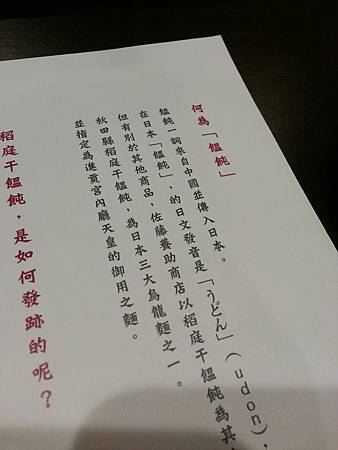 何為「饂飩」
饂飩一詞來自中國並傳入日本。
在日本「饂飩」，的日文發音是「うどん」（udon），
但有別於其他商品，佐藤養助商店以稻庭干饂飩為其
秋田縣稻庭干饂飩，為日本三大烏龍麵之一。
並指定為進貢宮內廳天皇的御用之麵。
稻庭干饂飩，是如何發跡的呢？